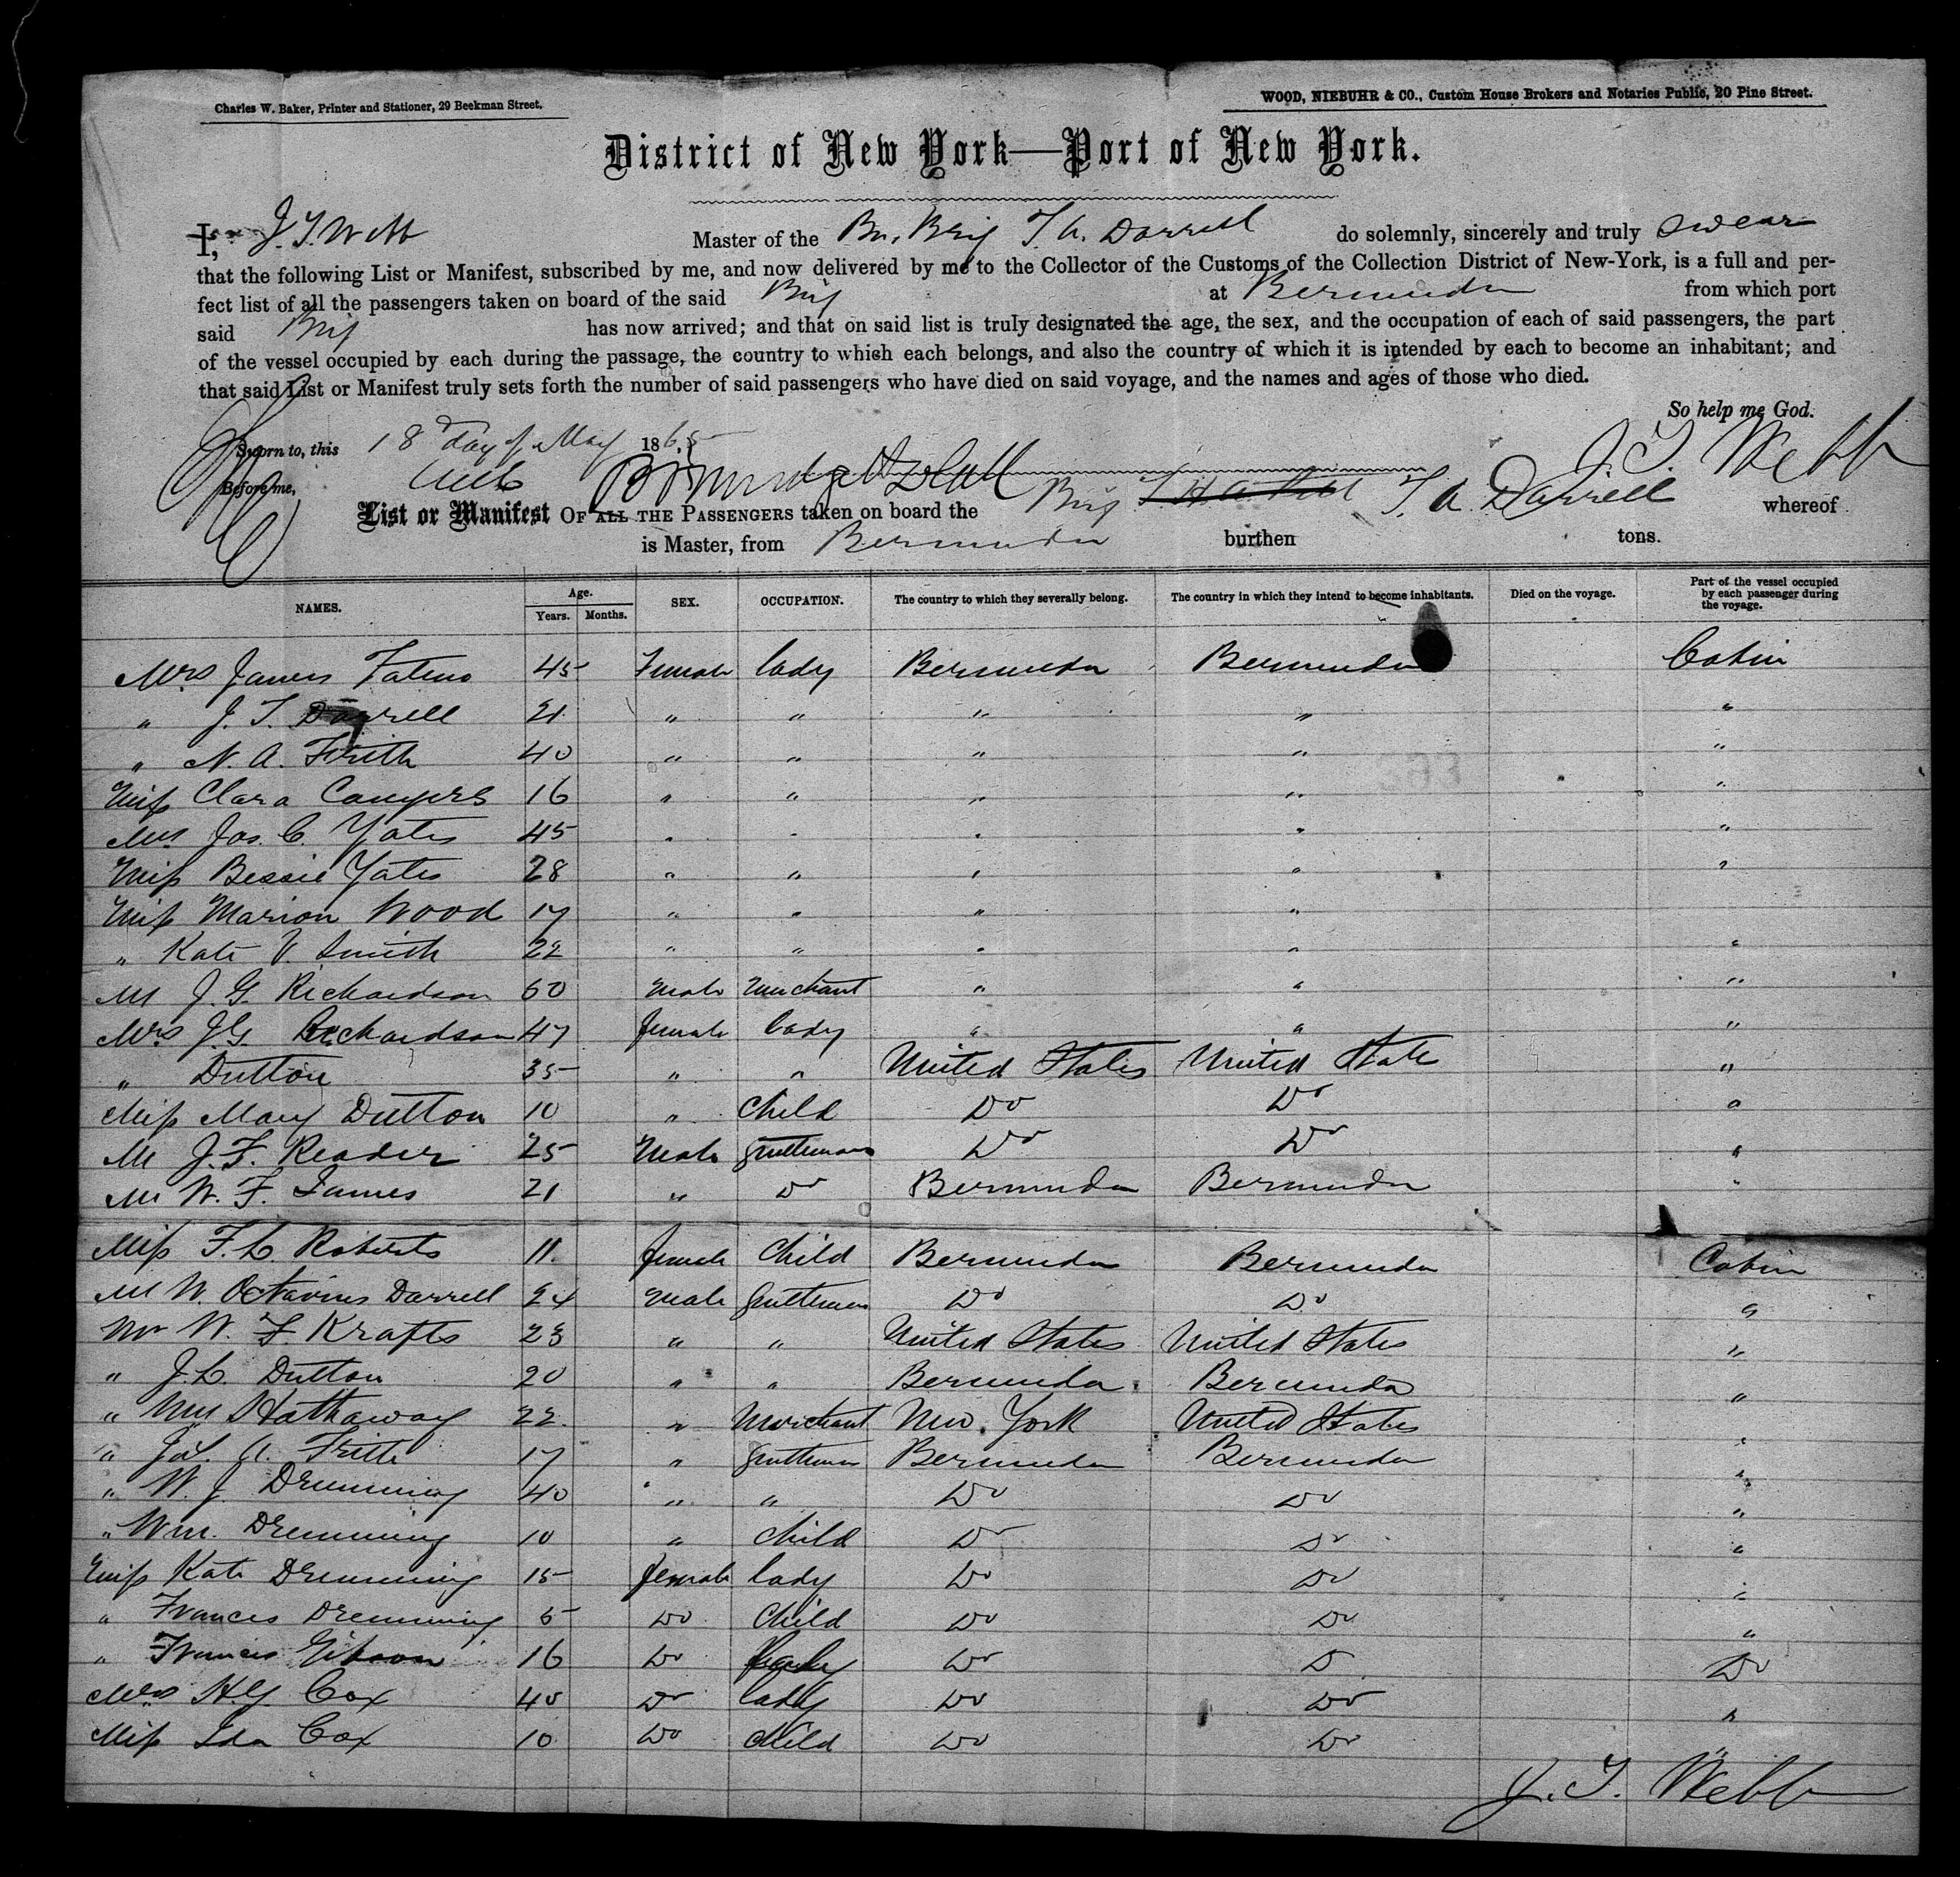 Charles W. Baker, Printer and Stationer, 29 Beekman Street.
WOOD, NIEBUHR & CO., Custom House Brokers and Notaries Public, 20 Pine Street.
District of New York—Port of New York.
I, J. T. Webb Master of the Br. Brig T. A. Darrell do solemnly, sincerely and truly swear
that the following List or Manifest, subscribed by me, and now delivered by me to the Collector of the Customs of the Collection District of New-York, is a full and per-
fect list of all the passengers taken on board of the said Brig at Bermuda from which port
said Brig has now arrived; and that on said list is truly designated the age, the sex, and the occupation of each of said passengers, the part
of the vessel occupied by each during the passage, the country to which each belongs, and also the country of which it is intended by each to become an inhabitant; and
that said List or Manifest truly sets forth the number of said passengers who have died on said voyage, and the names and ages of those who died.
So help me God.
Sworn to, this 18 day of May 1865
J. T. Webb
Before me,
List or Manifest OF ALL THE PASSENGERS taken on board the Brig T. A. Darrell whereof
is Master, from Bermuda burthen tons.
NAMES. Age. Years. Months. SEX. OCCUPATION. The country to which they severally belong. The country in which they intend to become inhabitants. Died on the voyage. Part of the vessel occupied by each passenger during the voyage.
Mrs James 45 Female lady Bermuda Bermuda Cabin
" J. T. Darrell 21 " " " " "
" N. A. Frith 40 " " " " "
Miss Clara Conyers 16 " " " " "
Mrs Jas. C. Yates 45 " " " " "
Miss Bessie Yates 28 " " " " "
Miss Marion Wood 17 " " " "
" Kate V. Smith 22 " " " " "
M J. G. Richardson 60 Male Merchant " " "
Mrs J. G. Richardson 47 female lady " " "
" Dutton 35 " " United States United State "
Miss Mary Dutton 10 " Child Do Do "
M J. F. Reader 25 Male gentleman Do Do "
Mr W. F. James 21 " Do Bermuda Bermuda "
Miss F. L. Roberts 11. female Child Bermuda Bermuda Cabin
M W. Octavius Darrell 24 Male Gentleman Do Do "
Mr W. F. Krafts 23 " " United States United States "
" J. L. Dutton 20 " " Bermuda Bermuda "
" Wm Hathaway 22 " Merchant New York United States "
" A. Frith 17 " gentleman Bermuda Bermuda "
" W. J. Dremming 40 " " Do Do "
" Wm. Dremming 10 " Child Do Do "
Miss Kate Dremming 15 female lady Do Do "
" Frances Dremming 5 Do Child Do Do "
" Frances Gibson 16 Do lady Do D Do
Mrs H. J. Cox 40 Do lady Do Do "
Miss Ida Cox 10 Do child Do Do "
J. T. Webb